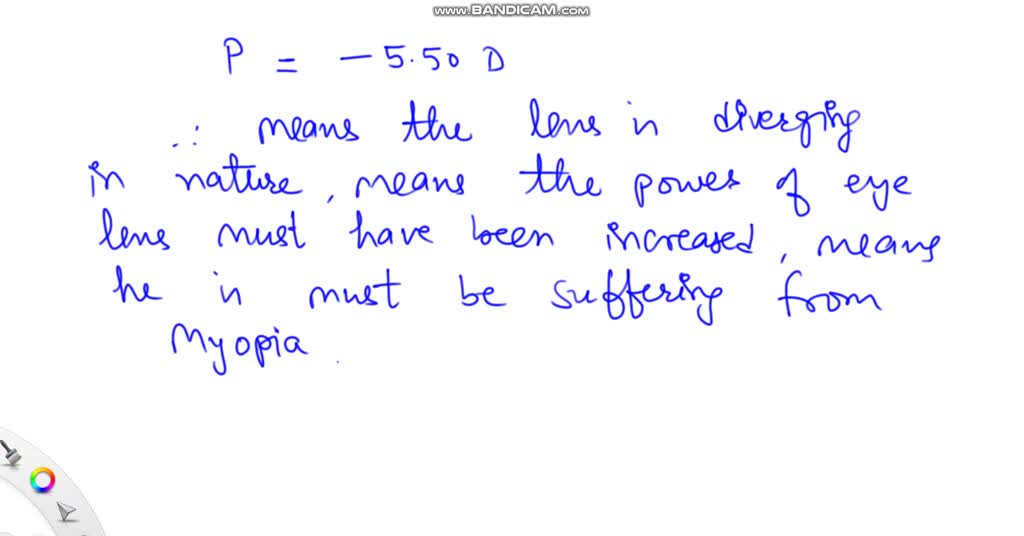 www.BANDICAM.com
P = - 5.50 D
∴ means the lens in diverging
in nature, means the power of eye
lens must have been increased, means
he in must be suffering from
Myopia.